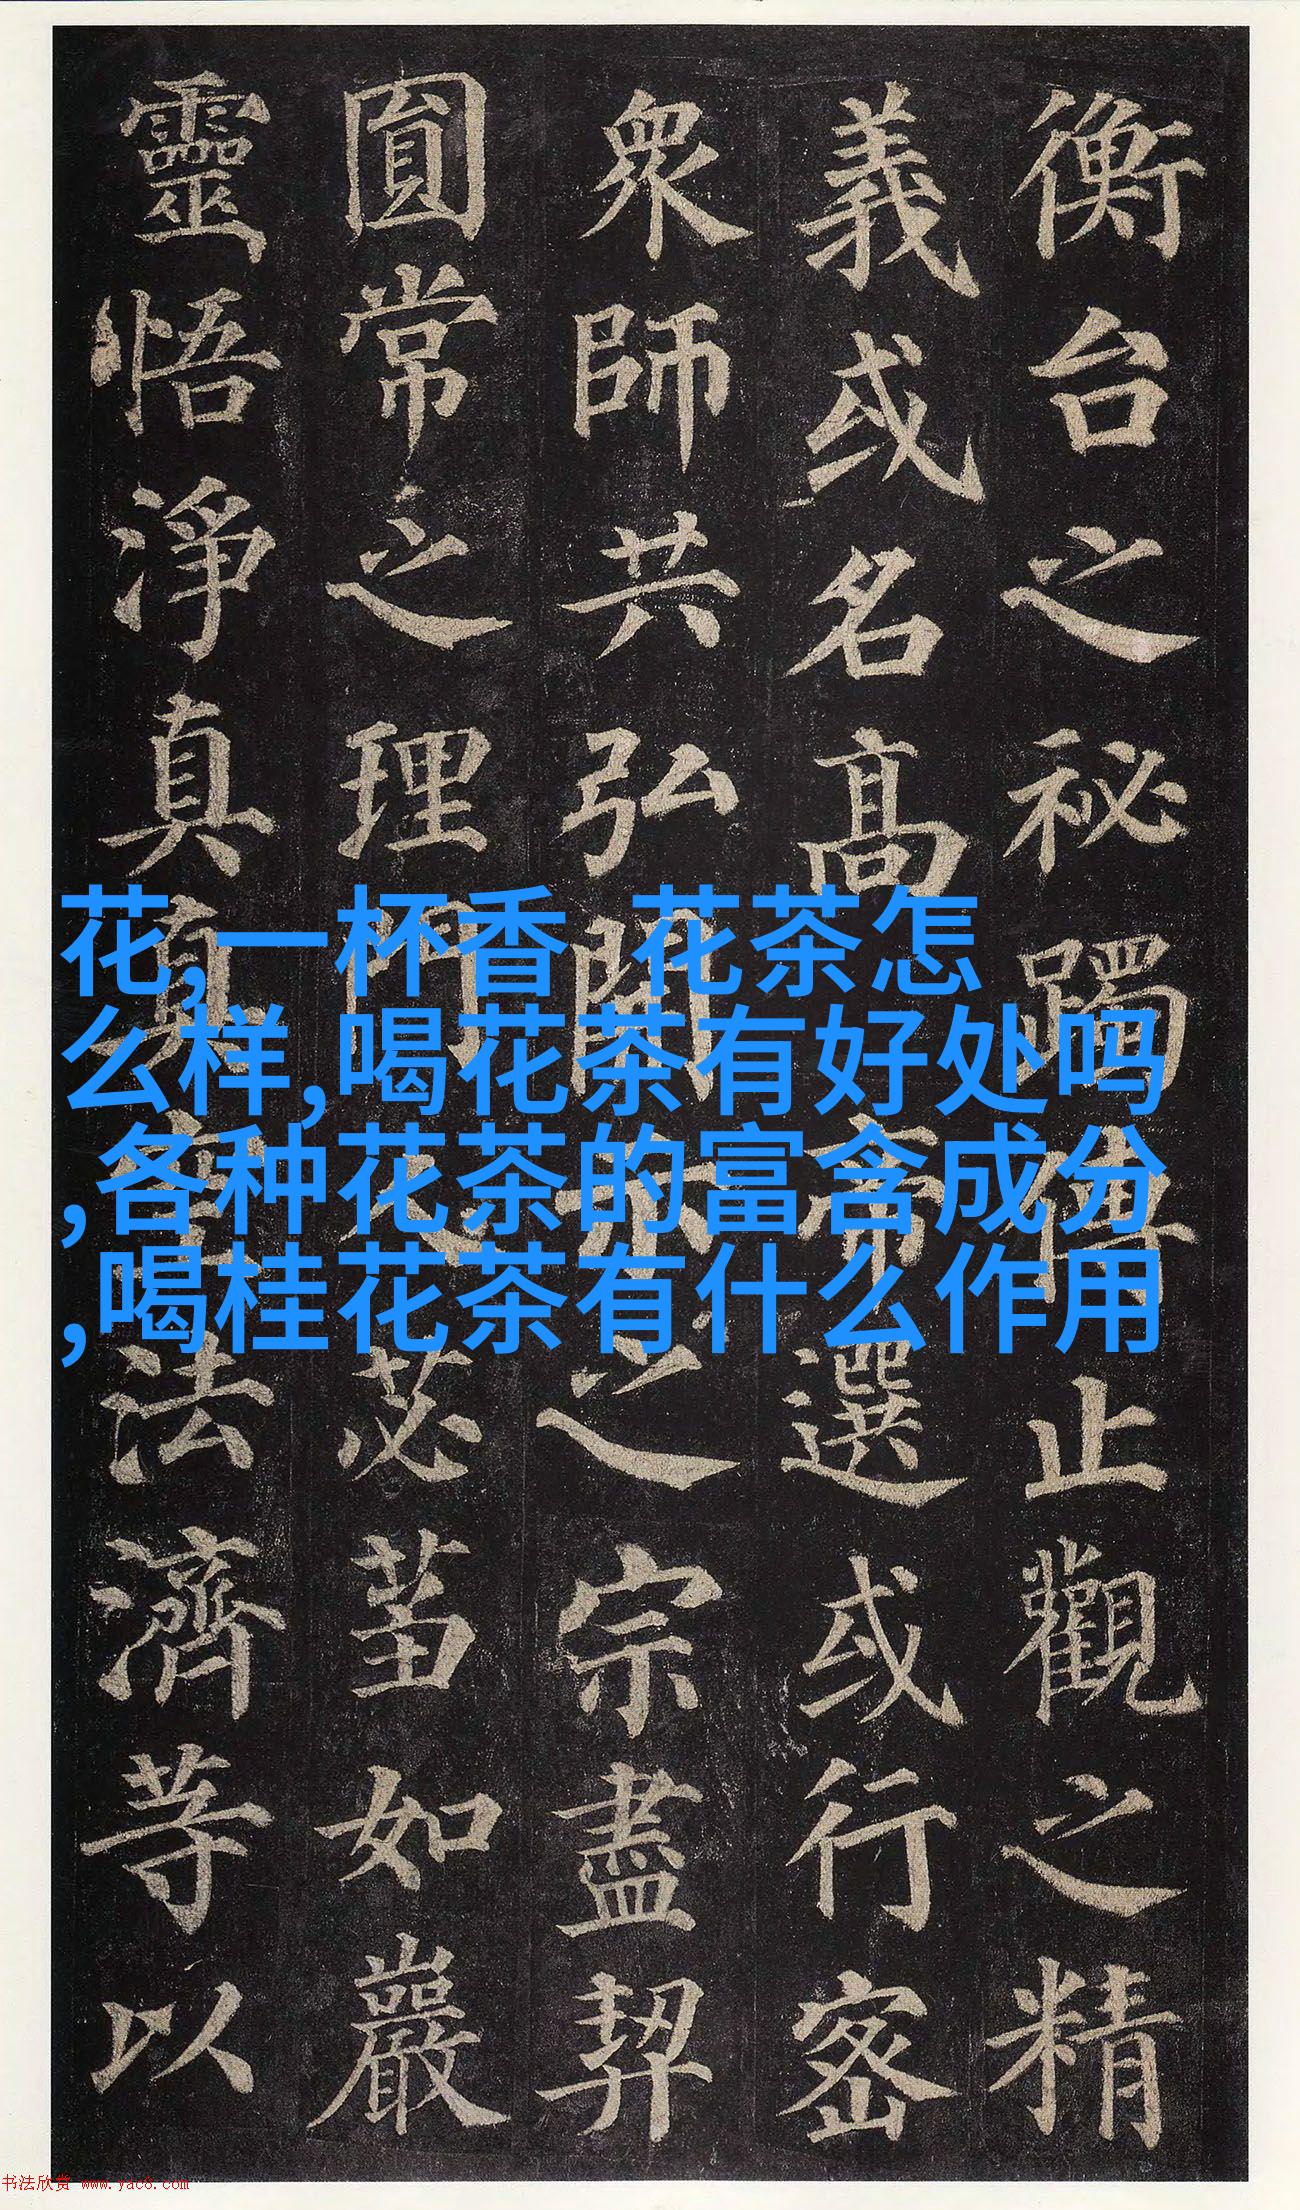 衡台之秘躅傳止觀之精
義或名高帝選或行密
衆師共弘開示之宗盡契
圎常之理門人苾蒭如巖
靈悟淨真真空法濟等以
花,一杯香 花茶怎
么样,喝花茶有好处吗
,各种花茶的富含成分
,喝桂花茶有什么作用
书法欣赏 www.yac8.com